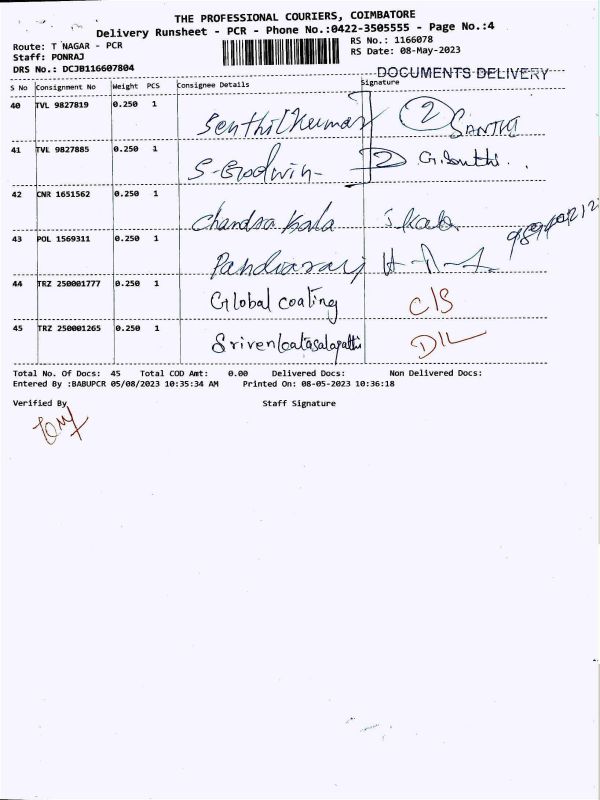 THE PROFESSIONAL COURIERS, COIMBATORE
Delivery Runsheet - PCR - Phone No.:0422-3505555 - Page No.:4
Route: T NAGAR - PCR
RS No.: 1166078
Staff: PONRAJ
RS Date: 08-May-2023
DRS No.: DCJB116607804
DOCUMENTS DELIVERY
S No Consignment No Weight PCS Consignee Details Signature
40 TVL 9827819 0.250 1
Senthilkumar 2 SANTHI
41 TVL 9827885 0.250 1
S-Godwin- 2 G. Santhi..
42 CNR 1651562 0.250 1
Chandra kala J. Kala
43 POL 1569311 0.250 1
Pandiaraj
44 TRZ 250001777 0.250 1
Global coating C/S
45 TRZ 250001265 0.250 1
Srivenkatasalapathi D/L
Total No. Of Docs: 45 Total COD Amt: 0.00 Delivered Docs: Non Delivered Docs:
Entered By :BABUPCR 05/08/2023 10:35:34 AM Printed On: 08-05-2023 10:36:18
Verified By Staff Signature